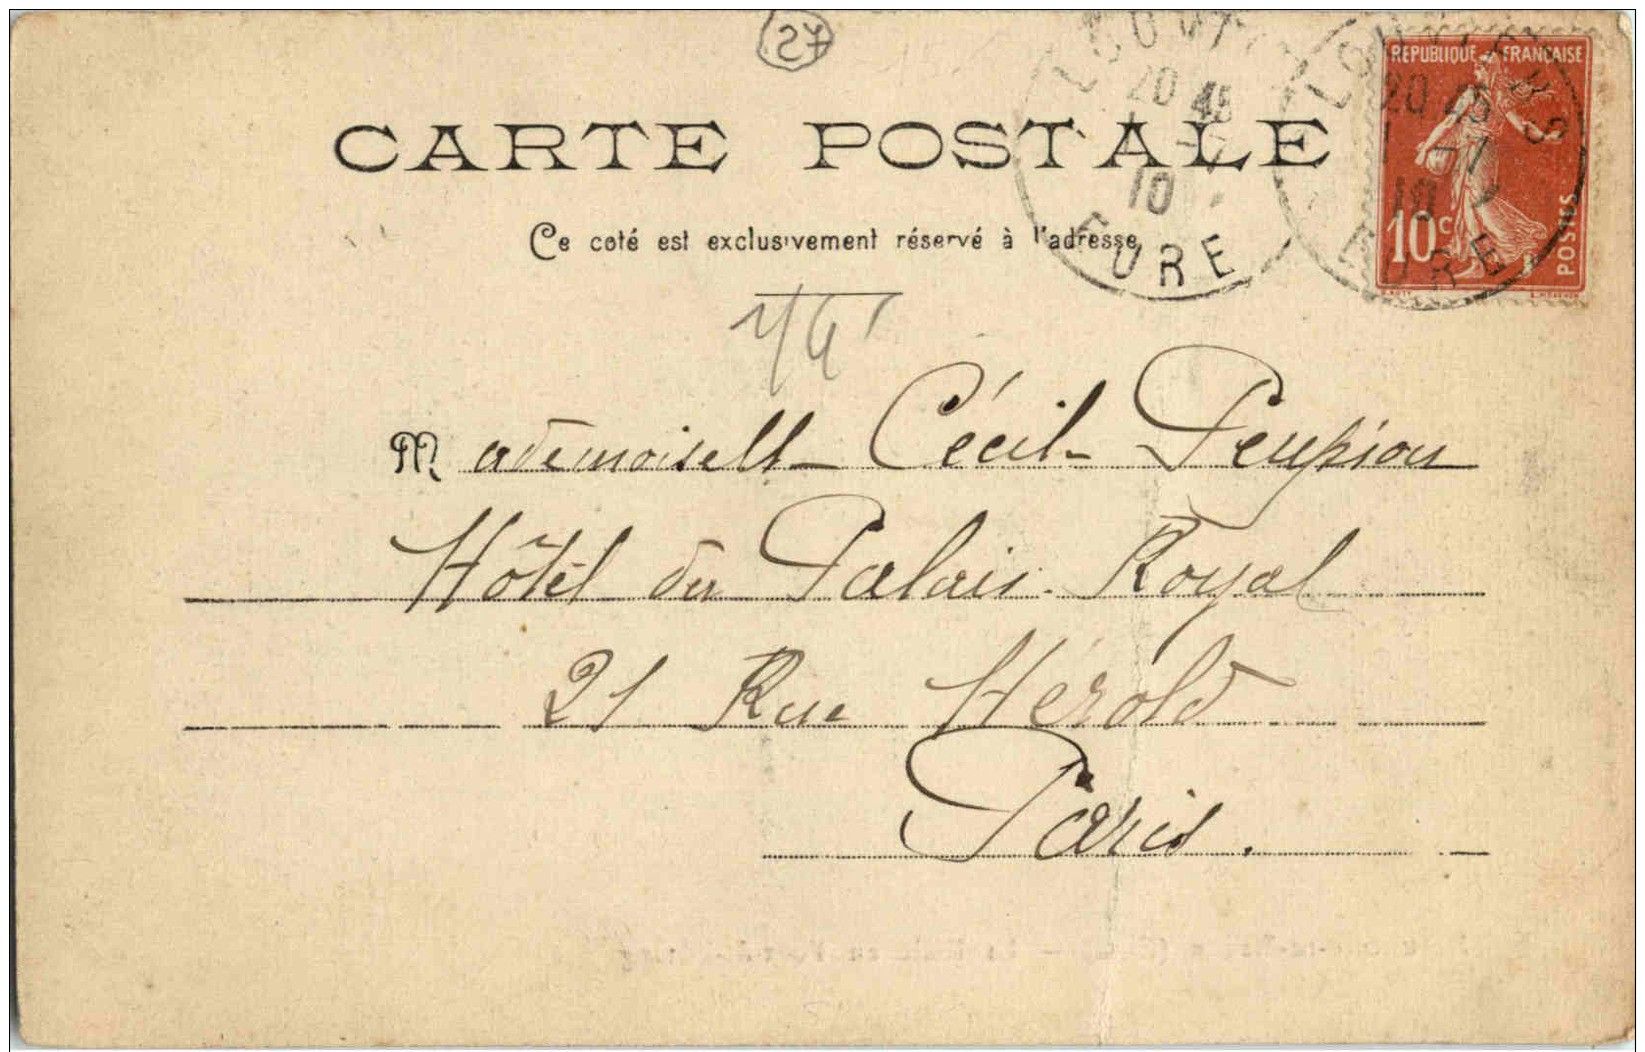 27
CARTE POSTALE
Ce coté est exclusivement réservé à l'adresse
LOUVIERS
20 45
10
EURE
REPUBLIQUE FRANÇAISE
10c
POSTES
Mademoiselle Cécile
Hôtel du Palais-Royal
21 Rue Hérold
Paris.